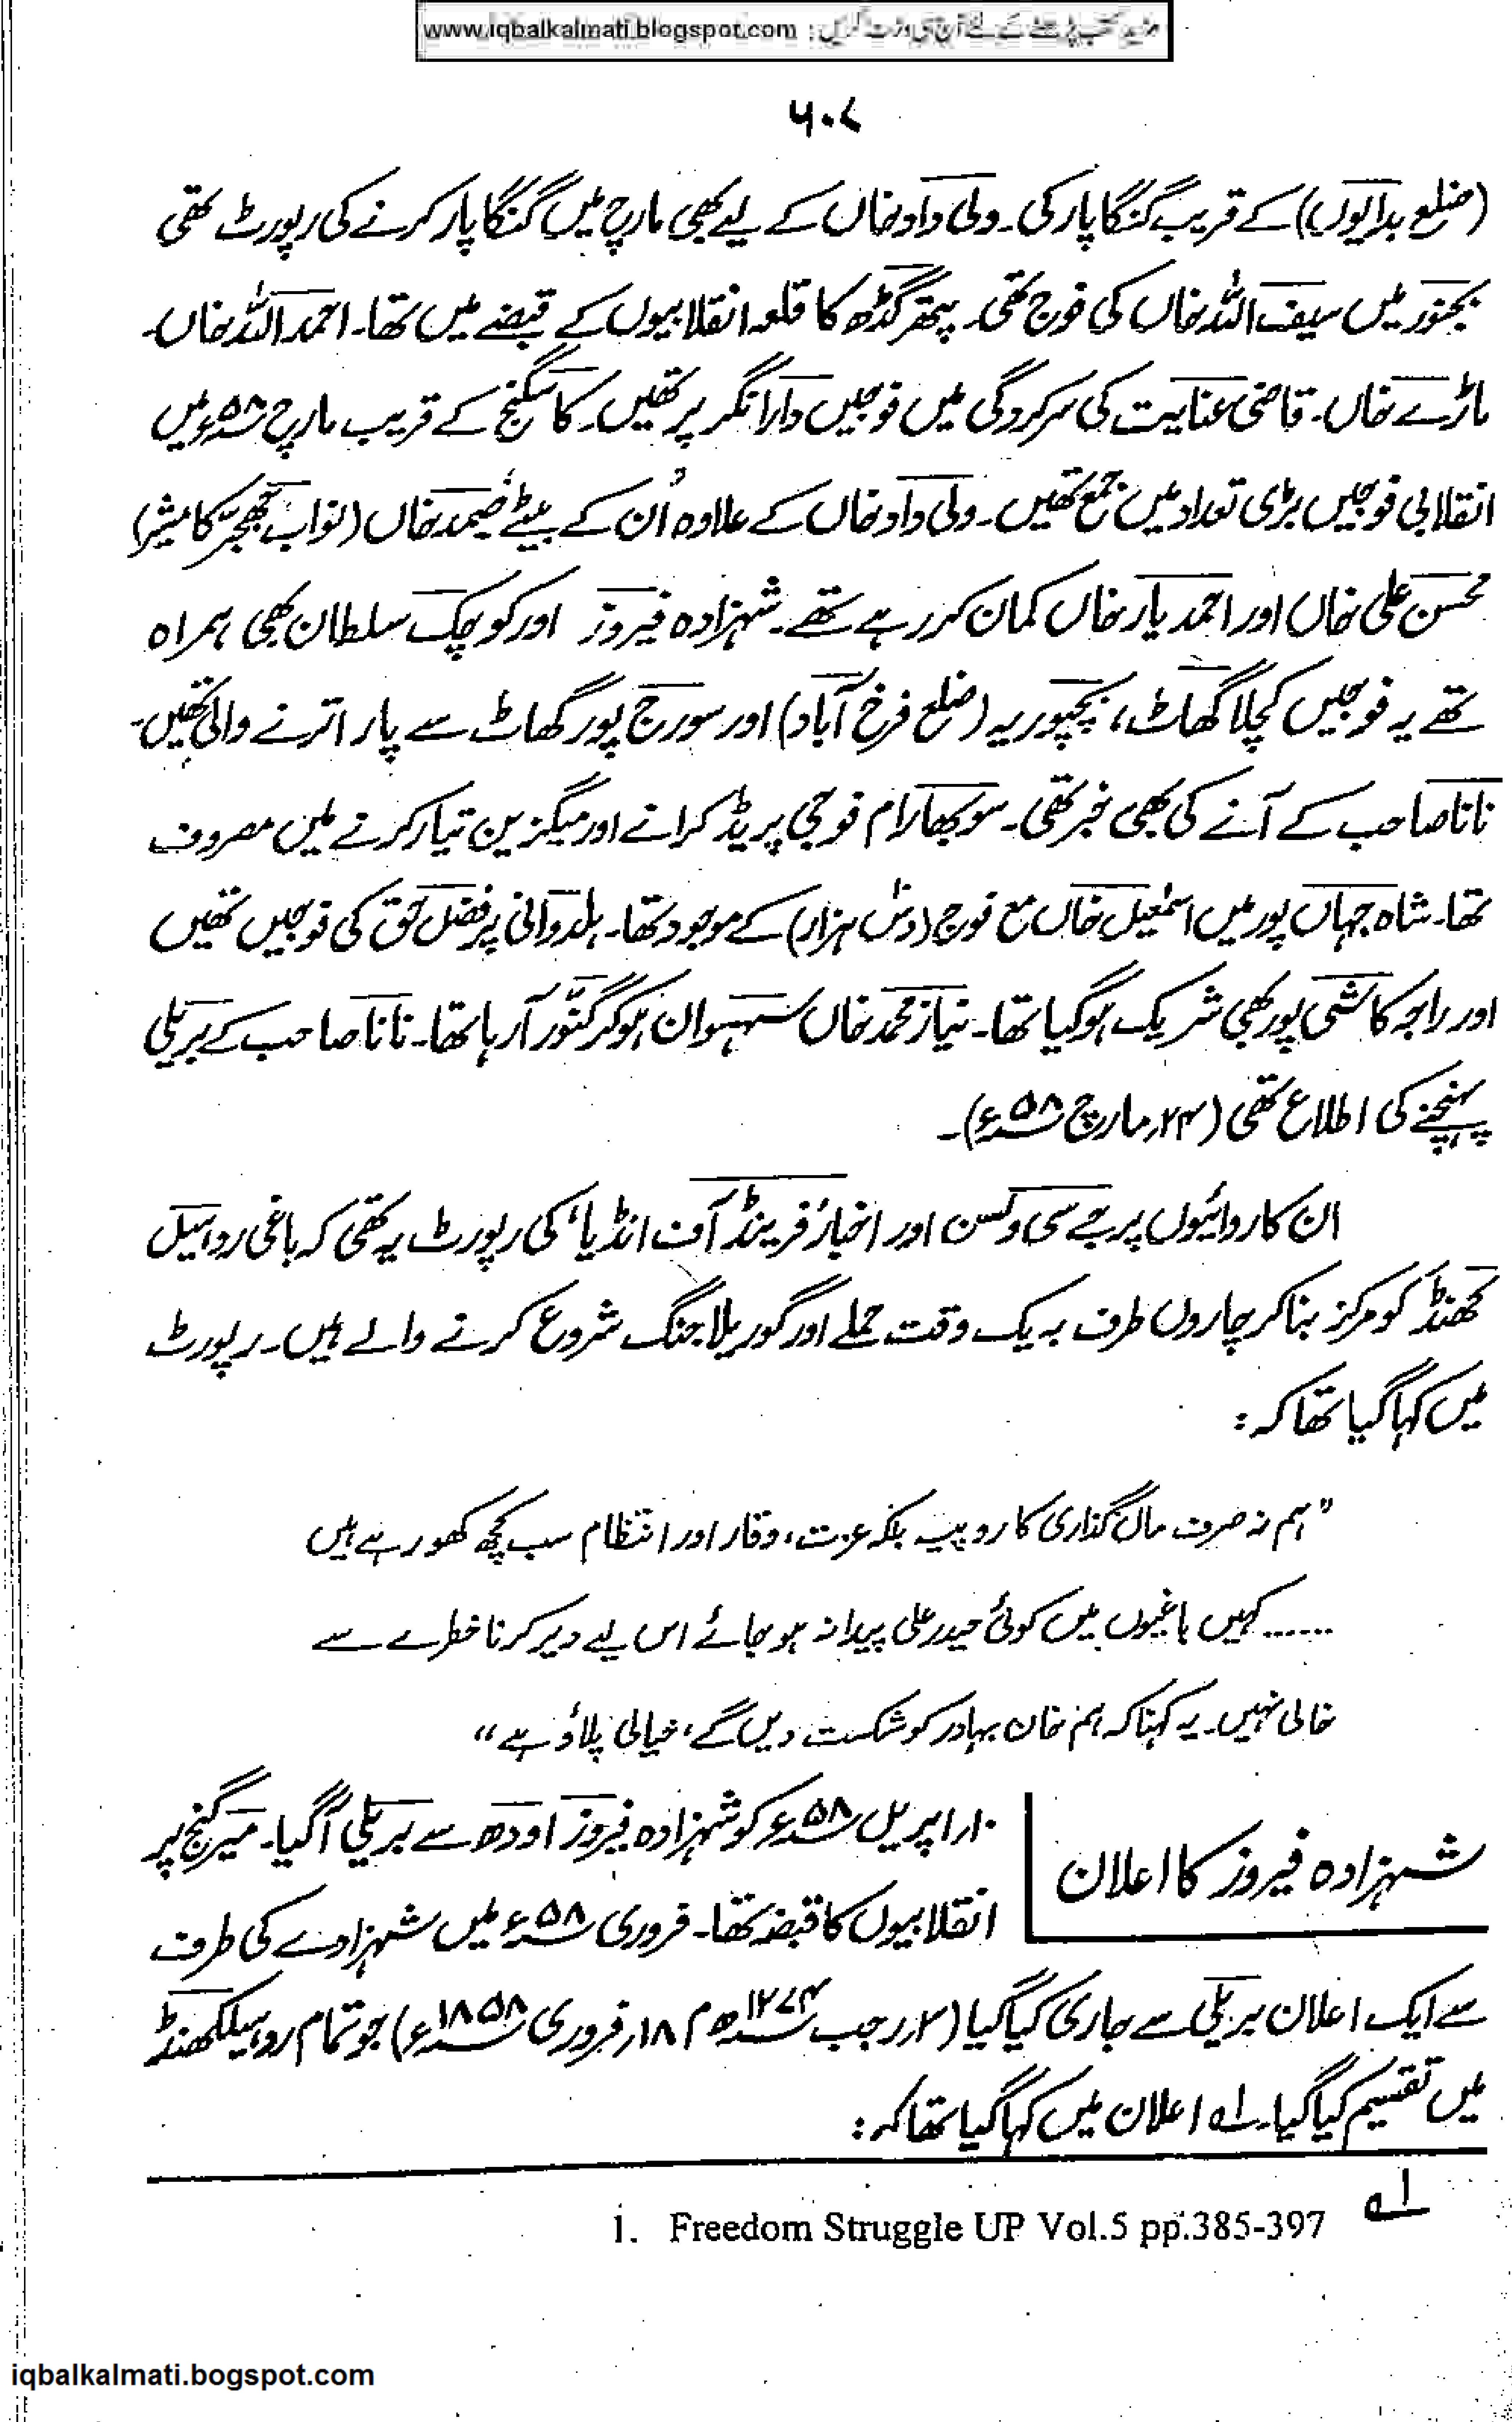 مزید کتب پڑھنے کے لئے آج ہی وزٹ کریں : www.iqbalkalmati.blogspot.com
۶۰۷
(ضلع بدایوں) کے قریب گنگا پار کی۔ ولی داد خاں کے لیے بھی مارچ میں گنگا پار کرنے کی رپورٹ تھی
بجنور میں سیف اللہ خاں کی فوج تھی۔ پتھر گڈھ کا قلعہ انقلابیوں کے قبضے میں تھا۔ احمد اللہ خاں۔
ماڑے خاں۔ قاضی عنایت کی سرکردگی میں فوجیں دارانگر پر تھیں۔ کاسگنج کے قریب مارچ ۵۸ء میں
انقلابی فوجیں بڑی تعداد میں جمع تھیں۔ ولی داد خاں کے علاوہ اُن کے بیٹے صمد خاں (نواب جھجر کا
محسن علی خاں اور احمد یار خاں کمان کر رہے تھے۔ شہزادہ فیروز اور کوچک سلطان بھی ہمراہ
تھے یہ فوجیں کچلا گھاٹ، (ضلع فرخ آباد) اور سورج پور گھاٹ سے پار اترنے والی تھیں۔
نانا صاحب کے آنے کی بھی خبر تھی۔ سوبھا رام فوجی پریڈ کرانے اور میگزین تیار کرنے میں مصروف
تھا۔ شاہ جہاں پور میں اسمٰعیل خاں مع فوج (دس ہزار) کے موجود تھا۔ ہلدوانی پر فضل حق کی فوجیں تھیں
اور راجہ کاشی پور بھی شریک ہو گیا تھا۔ نیاز محمد خاں سہسوان ہو کر گنّور آ رہا تھا۔ نانا صاحب کے بریلی
پہنچنے کی اطلاع تھی (۲۴؍ مارچ ۵۸ء)۔
ان کاروائیوں پر جے سی ولسن اور اخبار ’فرینڈ آف انڈیا‘ کی رپورٹ یہ تھی کہ باغی روہیل
کھنڈ کو مرکز بنا کر چاروں طرف بہ یک وقت حملے اور گوریلا جنگ شروع کرنے والے ہیں۔ رپورٹ
میں کہا گیا تھا کہ :
”ہم نہ صرف مال گذاری کا روپیہ بلکہ عزت، وقار اور انتظام سب کچھ کھو رہے ہیں
...... کہیں باغیوں میں کوئی حیدر علی پیدا نہ ہو جائے اس لیے دیر کرنا خطرے سے
خالی نہیں۔ یہ کہنا کہ ہم خان بہادر کو شکست دیں گے، خیالی پلاؤ ہے“
شہزادہ فیروز کا اعلان
۱۰؍ اپریل ۵۸ء کو شہزادہ فیروز اودھ سے بریلی آ گیا۔ میر گنج پر
انقلابیوں کا قبضہ تھا۔ فروری ۵۸ء میں شہزادے کی طرف
سے ایک اعلان بریلی سے جاری کیا گیا (۲؍ رجب ۱۲۷۴ھ م ۱۸؍ فروری ۱۸۵۸ء) جو تمام روہیلکھنڈ
میں تقسیم کیا گیا۔ لہ اعلان میں کہا گیا تھا کہ :
لہ
1. Freedom Struggle UP Vol.5 pp.385-397
iqbalkalmati.bogspot.com